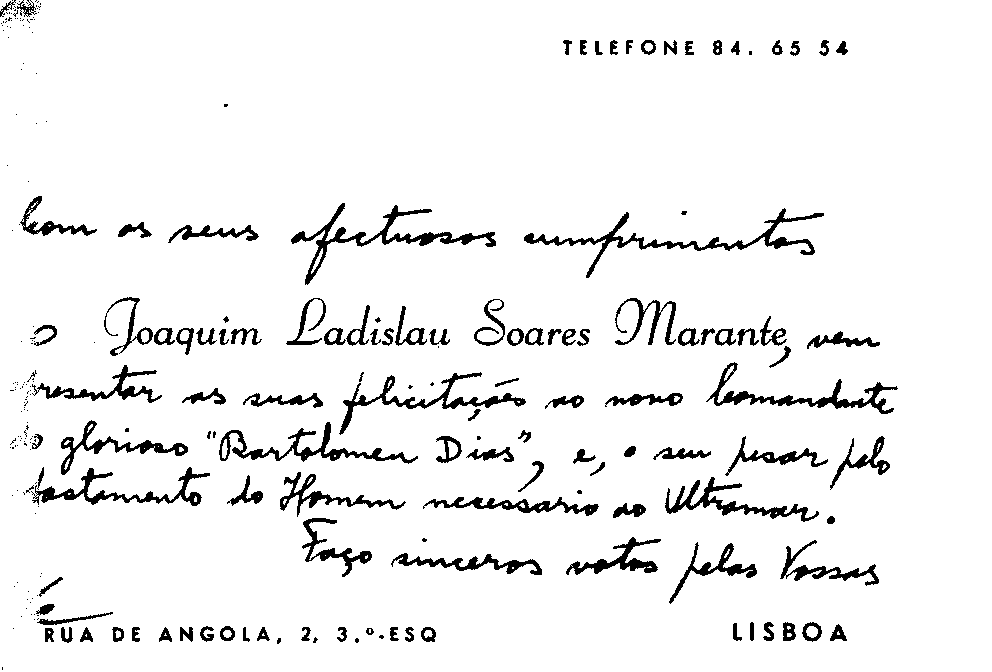 TELEFONE 84. 65 54
Com os seus afectuosos cumprimentos
O Joaquim Ladislau Soares Marante, vem
apresentar as suas felicitações ao novo Comandante
do glorioso "Bartolomeu Dias", e, o seu pesar pelo
afastamento do Homem necessario ao Ultramar.
Faço sinceros votos pelas Vossas
RUA DE ANGOLA, 2, 3.º-ESQ LISBOA